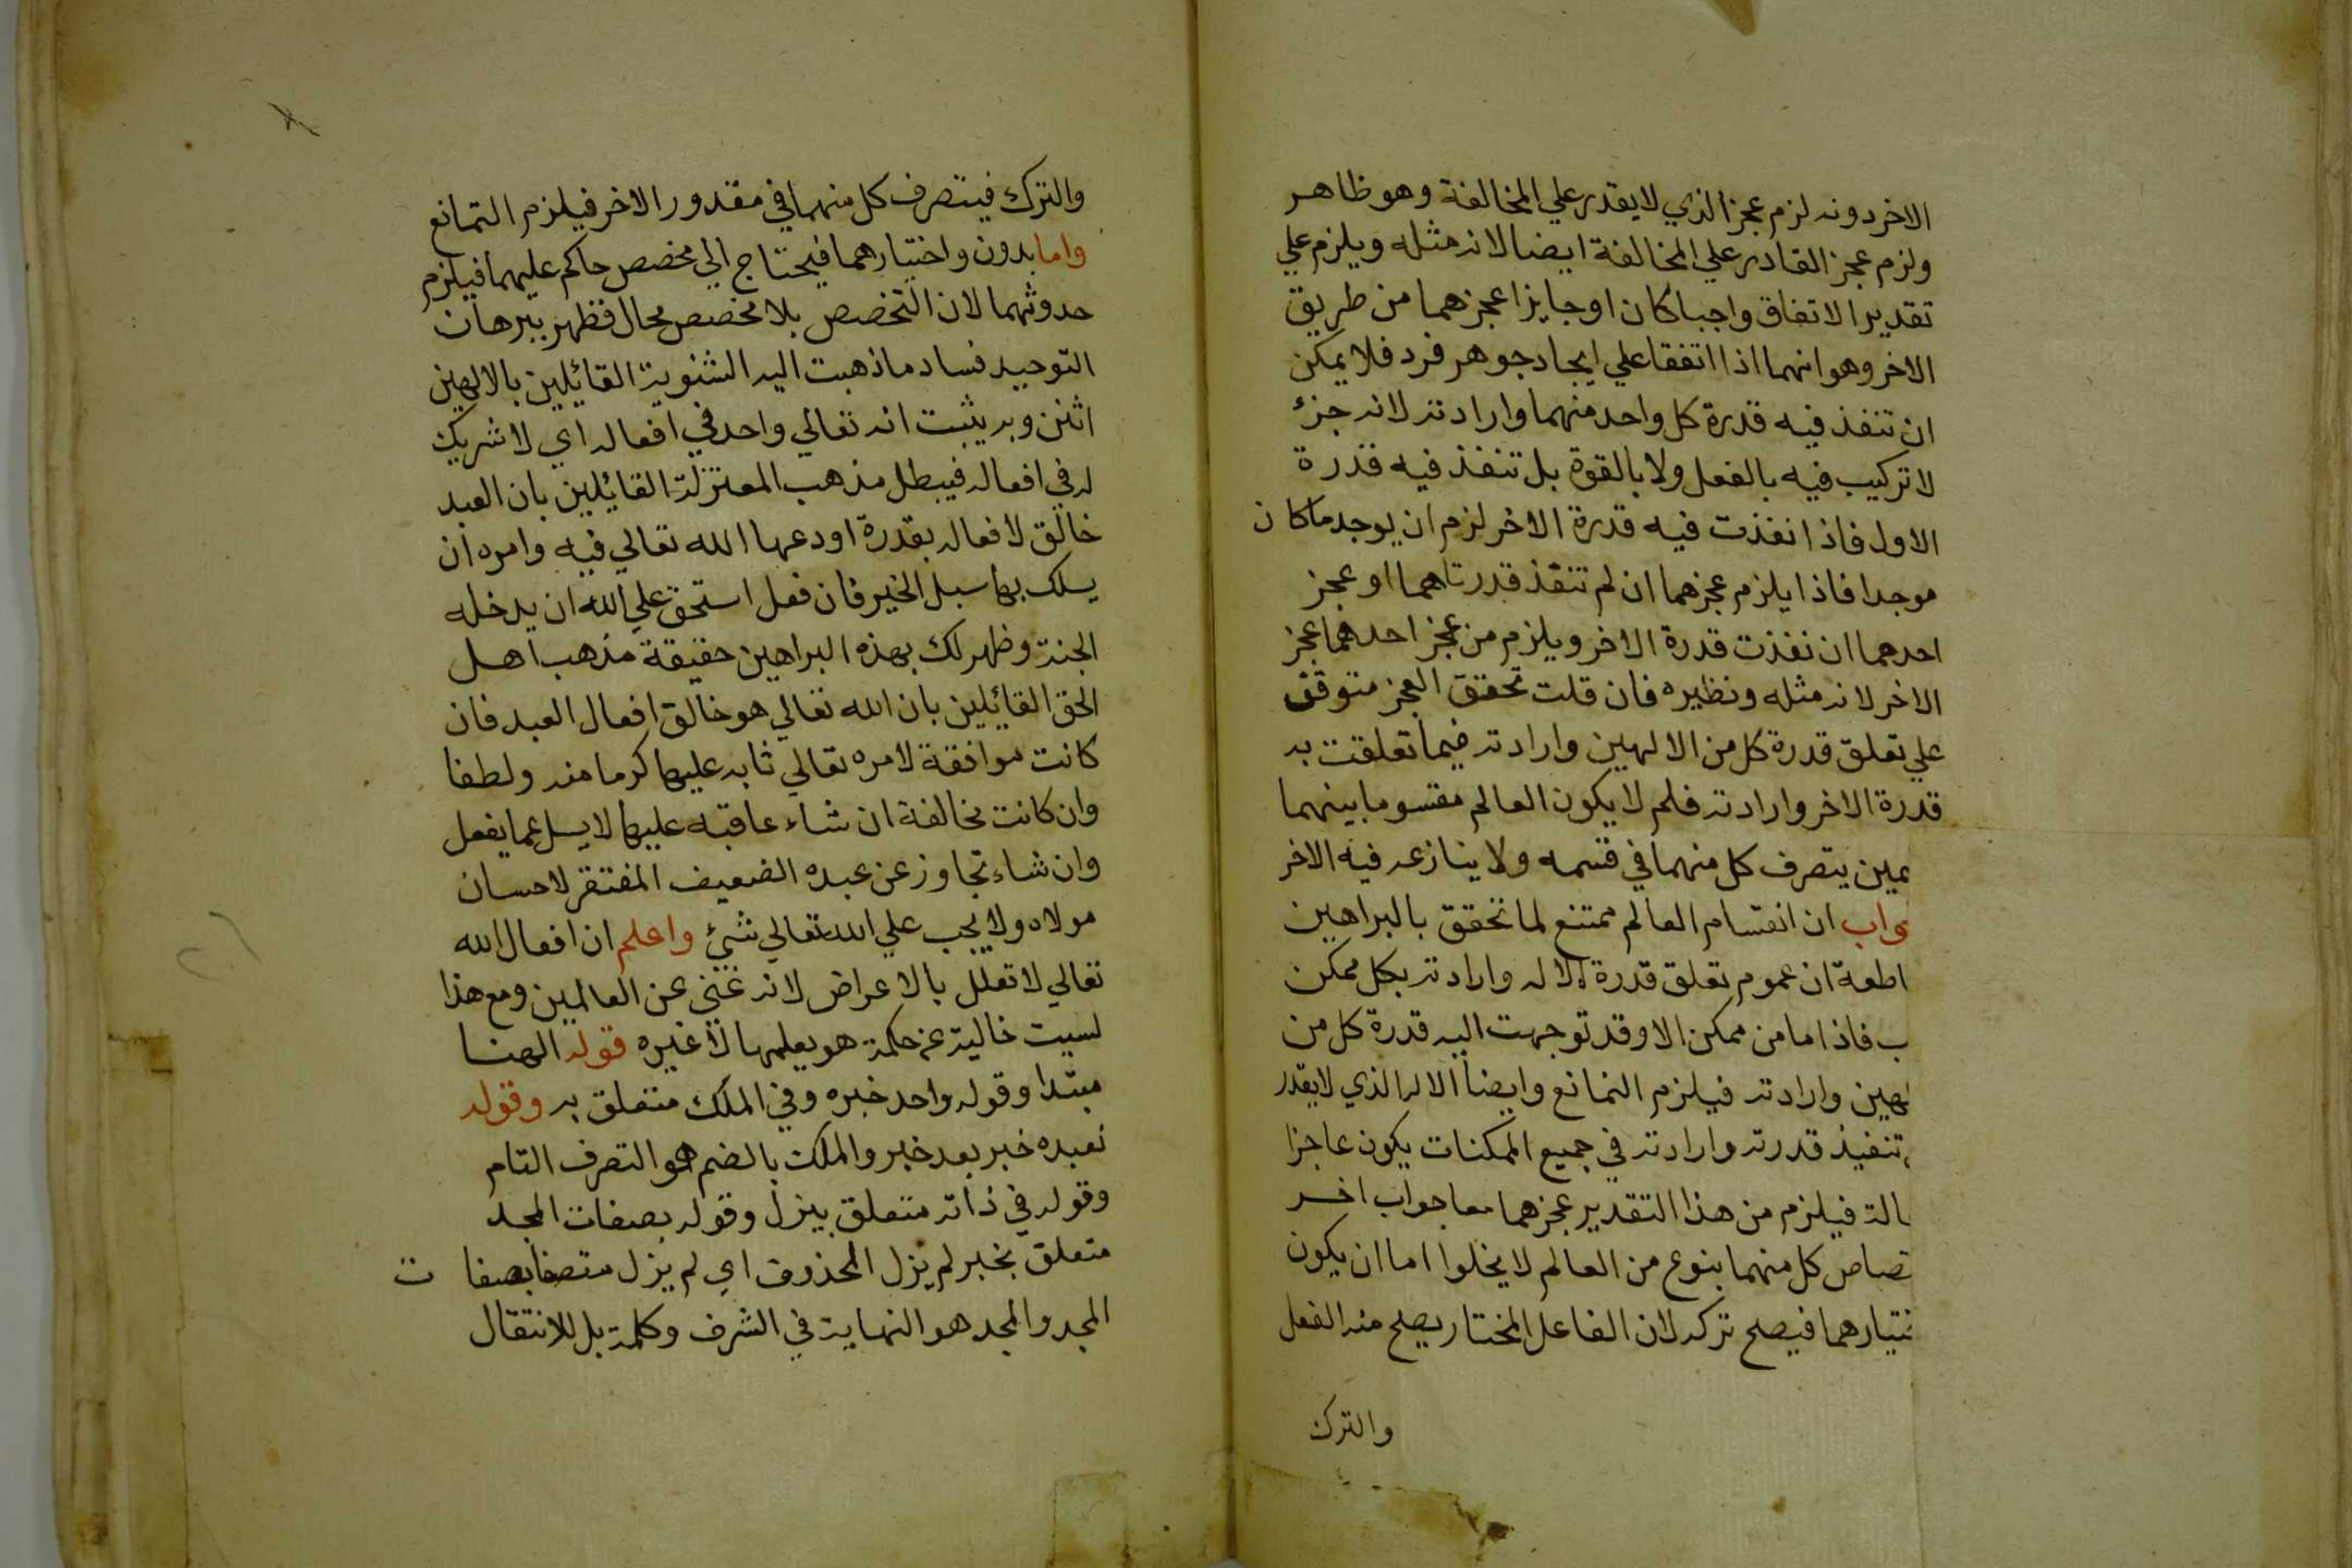 الاخر دونه لزم عجز الذي لا يقدر علي المخالفة وهو ظاهر
ولزم عجز القادر علي المخالفة ايضا لانه مثله ويلزم علي
تقدير الاتفاق واجبا كان او جايزا عجزهما من طريق
الاخر وهو انهما اذا اتفقا علي ايجاد جوهر فرد فلا يمكن
ان تنفذ فيه قدرة كل واحد منهما وارادته لانه جزء
لا تركيب فيه بالفعل ولا بالقوة بل تنفذ فيه قدرة
الاول فاذا نفذت فيه قدرة الاخر لزم ان يوجد ما كان
موجدا فاذا يلزم عجزهما ان لم تنفذ قدرتاهما او عجز
احدهما ان نفذت قدرة الاخر ويلزم من عجز احدهما عجز
الاخر لانه مثله ونظيره فان قلت تحقق العجز متوقف
علي تعلق قدرة كل من الالهين وارادته فيما تعلقت به
قدرة الاخر وارادته فلم لا يكون العالم مقسوما بينهما
ـمين يتصرف كل منهما في قسمه ولا ينازعه فيه الاخر
ـواب ان انقسام العالم ممتنع لما تحقق بالبراهين
اطعة ان عموم تعلق قدرة الاله وارادته بكل ممكن
ب فاذا ما من ممكن الا وقد توجهت اليه قدرة كل من
لهين وارادته فيلزم التمانع وايضا الاله الذي لا يقدر
تنفيذ قدرته وارادته في جميع الممكنات يكون عاجزا
ـالة فيلزم من هذا التقدير عجزهما معا جواب اخر
ـتصاص كل منهما بنوع من العالم لا يخلوا اما ان يكون
ـختيارهما فيصلح تركه لان الفاعل المختار يصلح منه الفعل
والترك
والترك فيتصرف كل منهما في مقدور الاخر فيلزم التمانع
واما بدون واختيارهما فيحتاج الي مخصص حاكم عليهما فيلزم
حدوثهما لان التخصص بلا مخصص محال فظهر ببرهان
التوحيد فساد ما ذهبت اليه الثنوية القائيلين بالالهين
اثنن وبه يثبت انه تعالي واحد في افعاله اي لا شريك
له في افعاله فيبطل مذهب المعتزلة القائيلين بان العبد
خالق لافعاله بقدرة اودعها الله تعالي فيه وامره ان
يسلك بها سبل الخير فان فعل استحق علي الله ان يدخله
الجنة وظهر لك بهذه البراهين حقيقة مذهب اهل
الحق القائيلين بان الله تعالي هو خالق افعال العبد فان
كانت موافقة لامره تعالي ثابه عليها كرما منه ولطفا
وان كانت مخالفة ان شاء عاقبه عليها لا يسل عما يفعل
وان شاء تجاوز عن عبده الضعيف المفتقر لاحسان
مولاه ولا يجب علي الله تعالي شئ واعلم ان افعال الله
تعالي لا تعلل بالاعراض لانه غني عن العالمين ومع هذا
لسيت خالية عن حكمة هو يعلمها لا غيره قوله الهنا
مبتدا وقوله واحد خبره وفي الملك متعلق به وقوله
نعبده خبر بعد خبر والملك بالضم هو التصرف التام
وقوله في ذاته متعلق بيزل وقوله بصفات المجد
متعلق بخبر لم يزل المحذوف اي لم يزل متصفا بصفات
المجد والمجد هو النهاية في الشرف وكلمة بل للانتقال